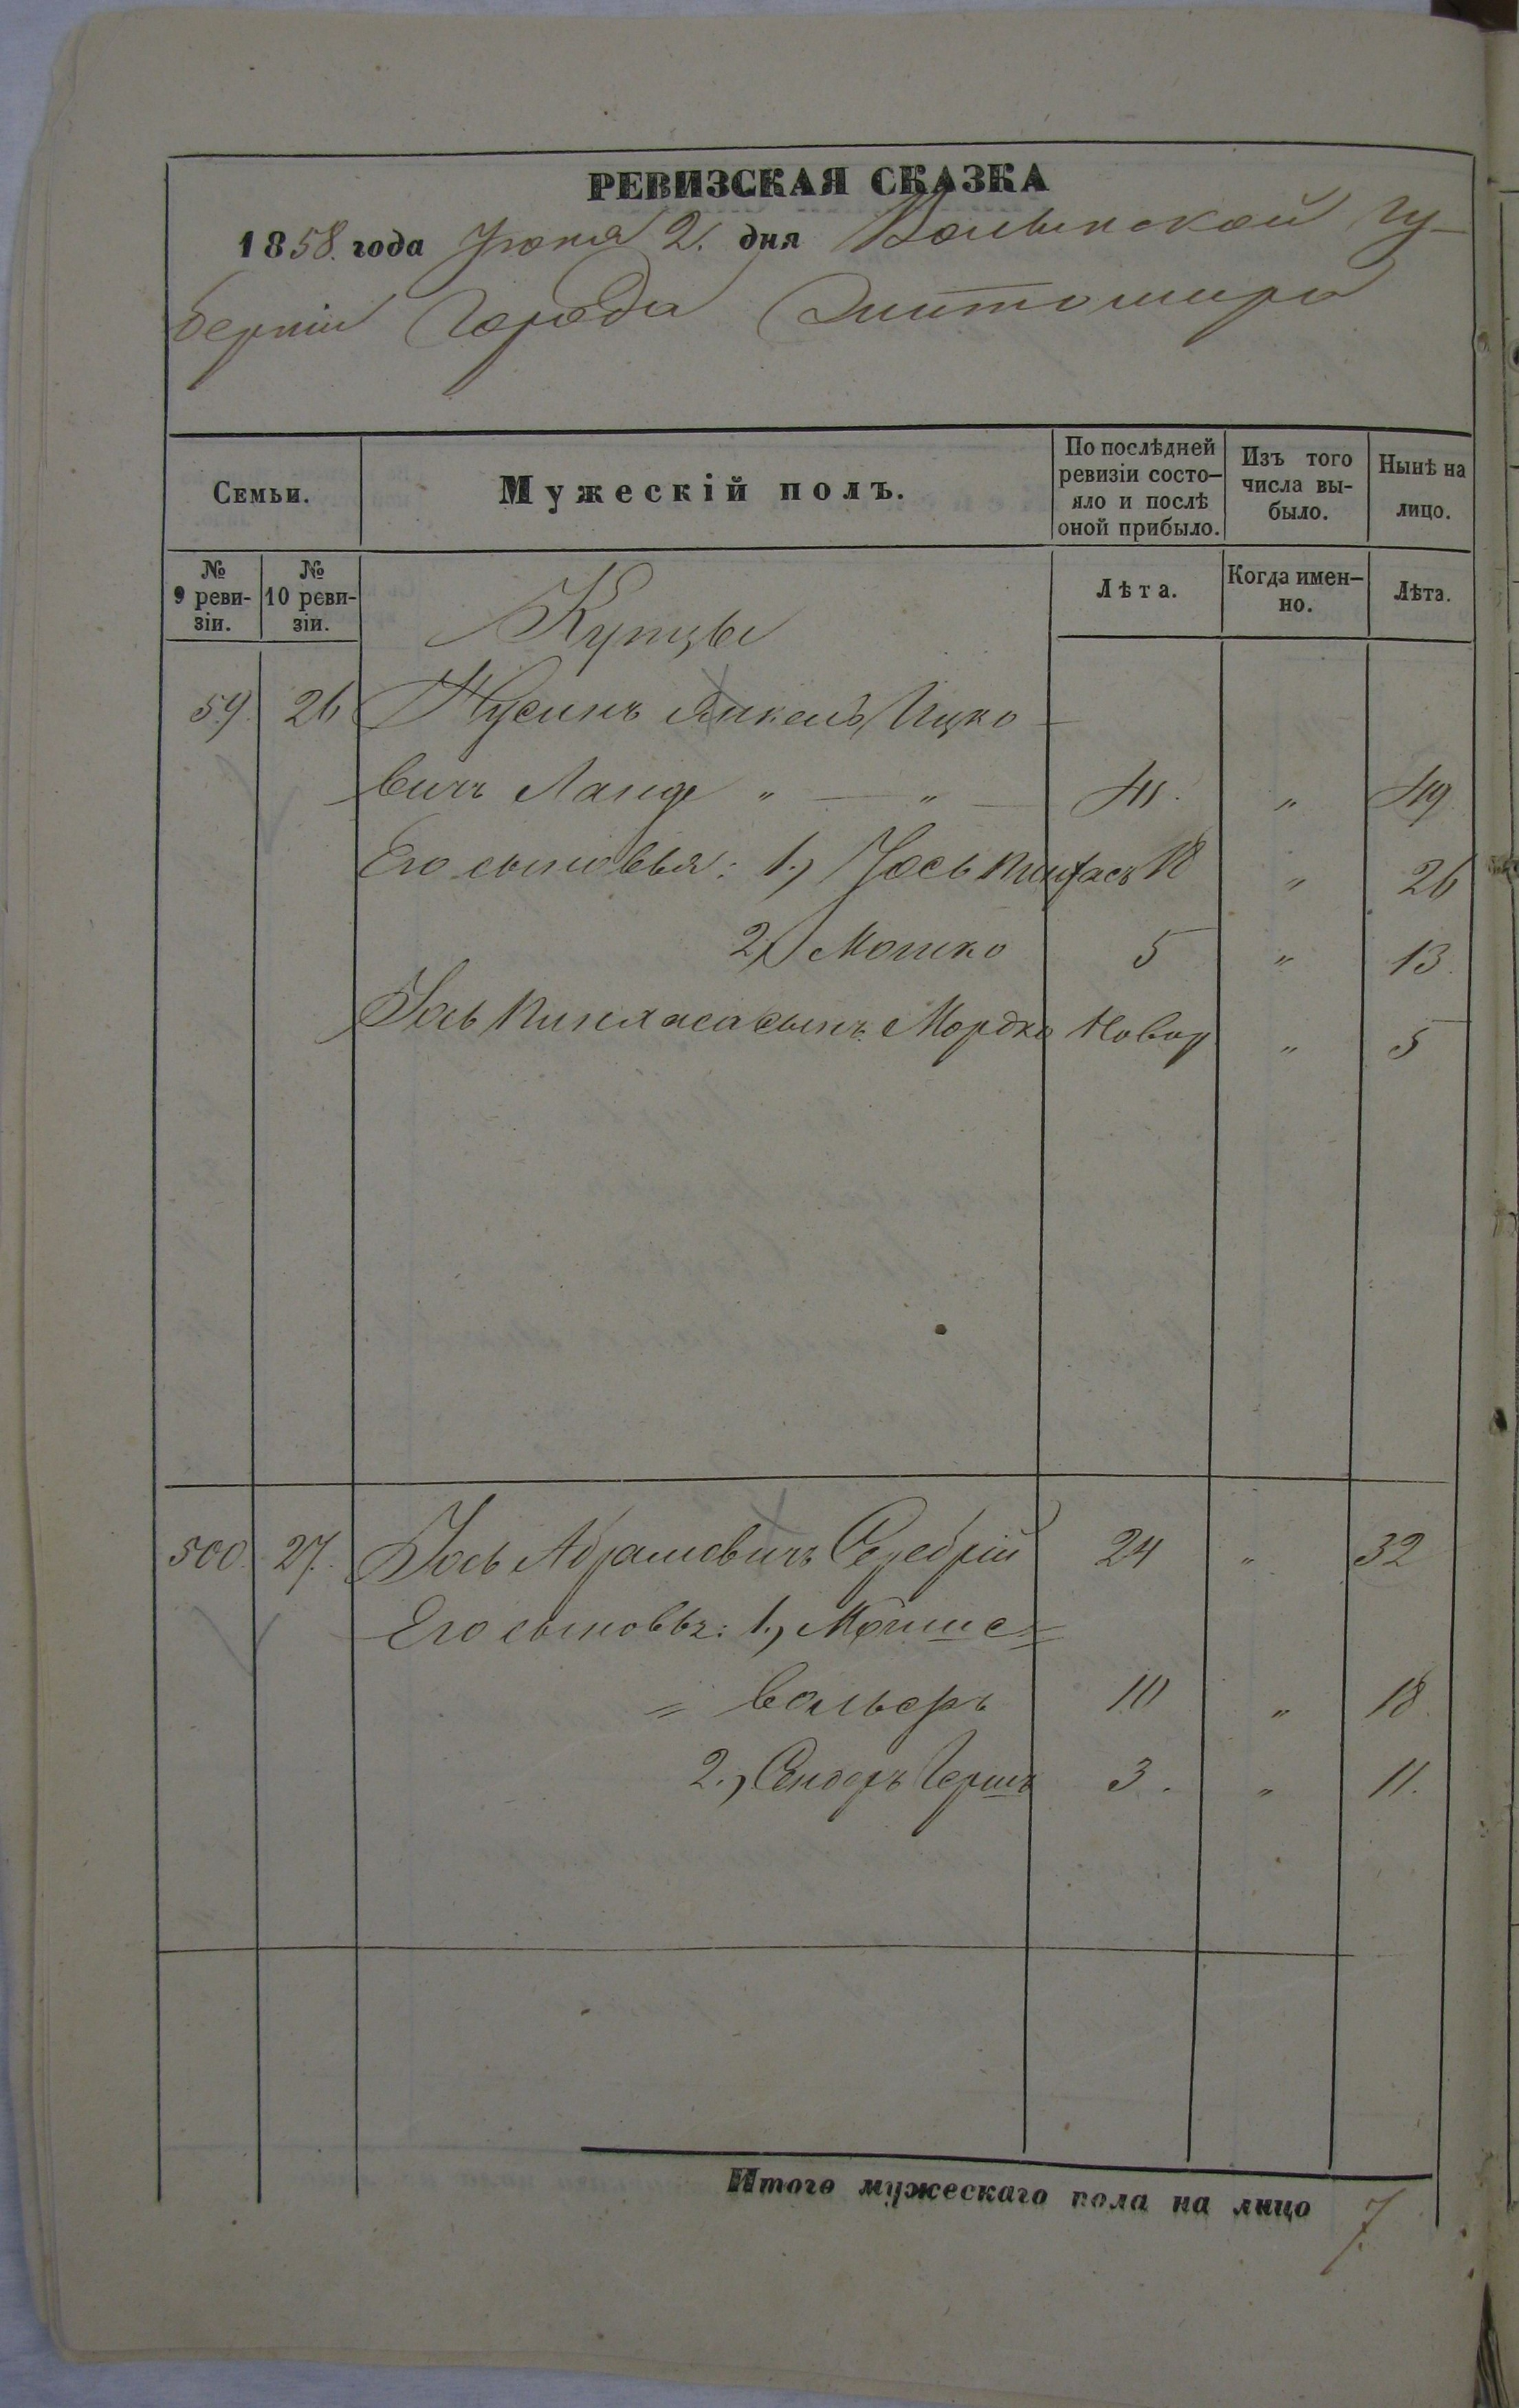 РЕВИЗСКАЯ СКАЗКА
1858. года Іюня 2. дня Волынской гу-
берніи Города Житомира
Семьи.
Мужескій полъ.
По послѣдней ревизіи состо-яло и послѣ оной прибыло.
Изъ того числа вы-было.
Нынѣ на лицо.
№ 9 реви-зіи.
№ 10 реви-зіи.
Лѣта.
Когда имен-но.
Лѣта.
Купцы
59. 26 Нусинъ Янкель Ицко-
вичъ Ланде " — " — 41. " 49
Его сыновья: 1.) Іось Пинхасъ 18 " 26
2.) Мошко 5 " 13.
Іось Пинхаса сынъ Мордко Новор " 5
500. 27. Іось Абрамовичъ Серебрій 24 " 32
Его сыновья: 1.) Мошие=
= Вольфъ 10 " 18.
2.) Сендеръ Гершъ 3. " 11.
Итого мужескаго пола на лицо 7.